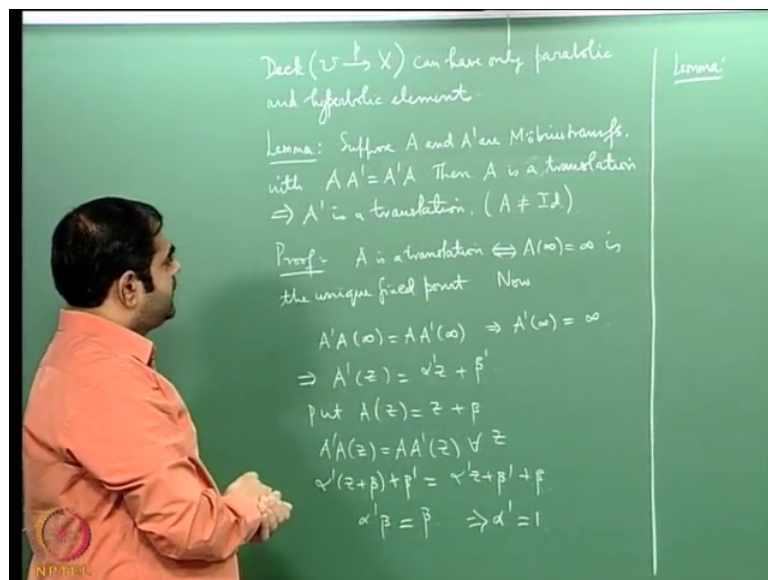 Deck (U \xrightarrow{p} X) can have only parabolic
and hyperbolic element.
Lemma: Suppose A and A' are Möbius transfs.
with AA' = A'A Then A is a translation
⇒ A' is a translation. (A ≠ Id)
Proof:- A is a translation ⇔ A(∞) = ∞ is
the unique fixed point Now
A'A(∞) = AA'(∞) ⇒ A'(∞) = ∞
⇒ A'(z) = α'z + β'
put A(z) = z + β
A'A(z) = AA'(z) ∀ z
α'(z+β) + β' = α'z + β' + β
α'β = β ⇒ α' = 1
Lemma:
NPTEL